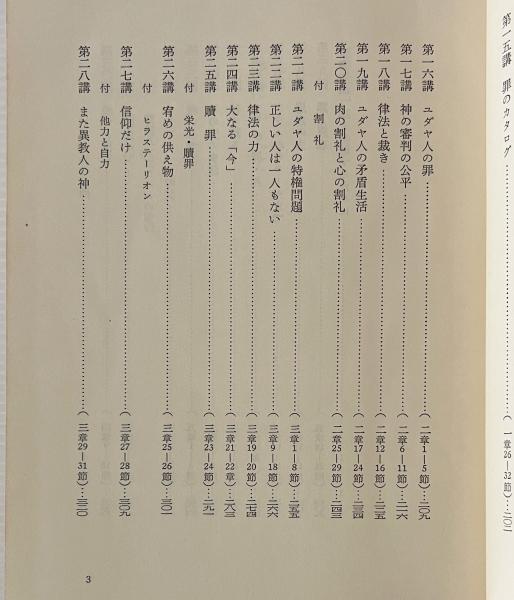 第一五講 罪のカタログ……(一章26―32節)…二〇二
第一六講 ユダヤ人の罪……(二章1―5節)…二〇九
第一七講 神の審判の公平……(二章6―11節)…二一六
第一八講 律法と裁き……(二章12―16節)…二二五
第一九講 ユダヤ人の矛盾生活……(二章17―24節)…二三四
第二〇講 肉の割礼と心の割礼……(二章25―29節)…二四三
付 割礼
第二一講 ユダヤ人の特権問題……(三章1―8節)…二五五
第二二講 正しい人は一人もない……(三章9―18節)…二六六
第二三講 律法の力……(三章19―20節)…二七四
第二四講 大なる「今」……(三章21―22章)…二八三
第二五講 贖罪……(三章23―24節)…二九一
付 栄光・贖罪
第二六講 宥めの供え物……(三章25―26節)…三〇一
付 ヒラステーリオン
第二七講 信仰だけ……(三章27―28節)…三〇九
付 他力と自力
第二八講 また異教人の神……(三章29―31節)…三二〇
3